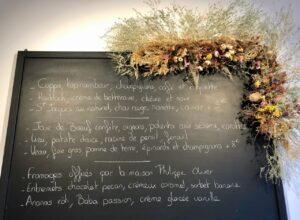 - Coppa, topinambour, champignons, café et
- Haddock, crème de betterave, chèvre et
- St Jacques au naturel, chou rouge,
- Joue de Bœuf confite, oignons, polenta aux
- Lieu, patate douce, racine de persil,
- Veau, foie gras, pomme de terre, épinards et champignons + 8€
- Fromages affinés par la maison Philippe Olivier
- Entremets chocolat pecan, crémeux caramel, sorbet banane
- Ananas roti, Baba passion, crème glacée vanille